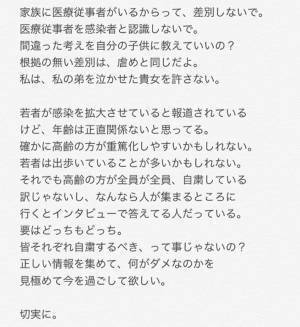 家族に医療従事者がいるからって、差別しないで。
医療従事者を感染者と認識しないで。
間違った考えを自分の子供に教えていいの？
根拠の無い差別は、虐めと同じだよ。
私は、私の弟を泣かせた貴女を許さない。
若者が感染を拡大させていると報道されている
けど、年齢は正直関係ないと思ってる。
確かに高齢の方が重篤化しやすいかもしれない。
若者は出歩いていることが多いかもしれない。
それでも高齢の方が全員が全員、自粛している
訳じゃないし、なんなら人が集まるところに
行くとインタビューで答えてる人だっている。
要はどっちもどっち。
皆それぞれ自粛するべき、って事じゃないの？
正しい情報を集めて、何がダメなのかを
見極めて今を過ごして欲しい。
切実に。